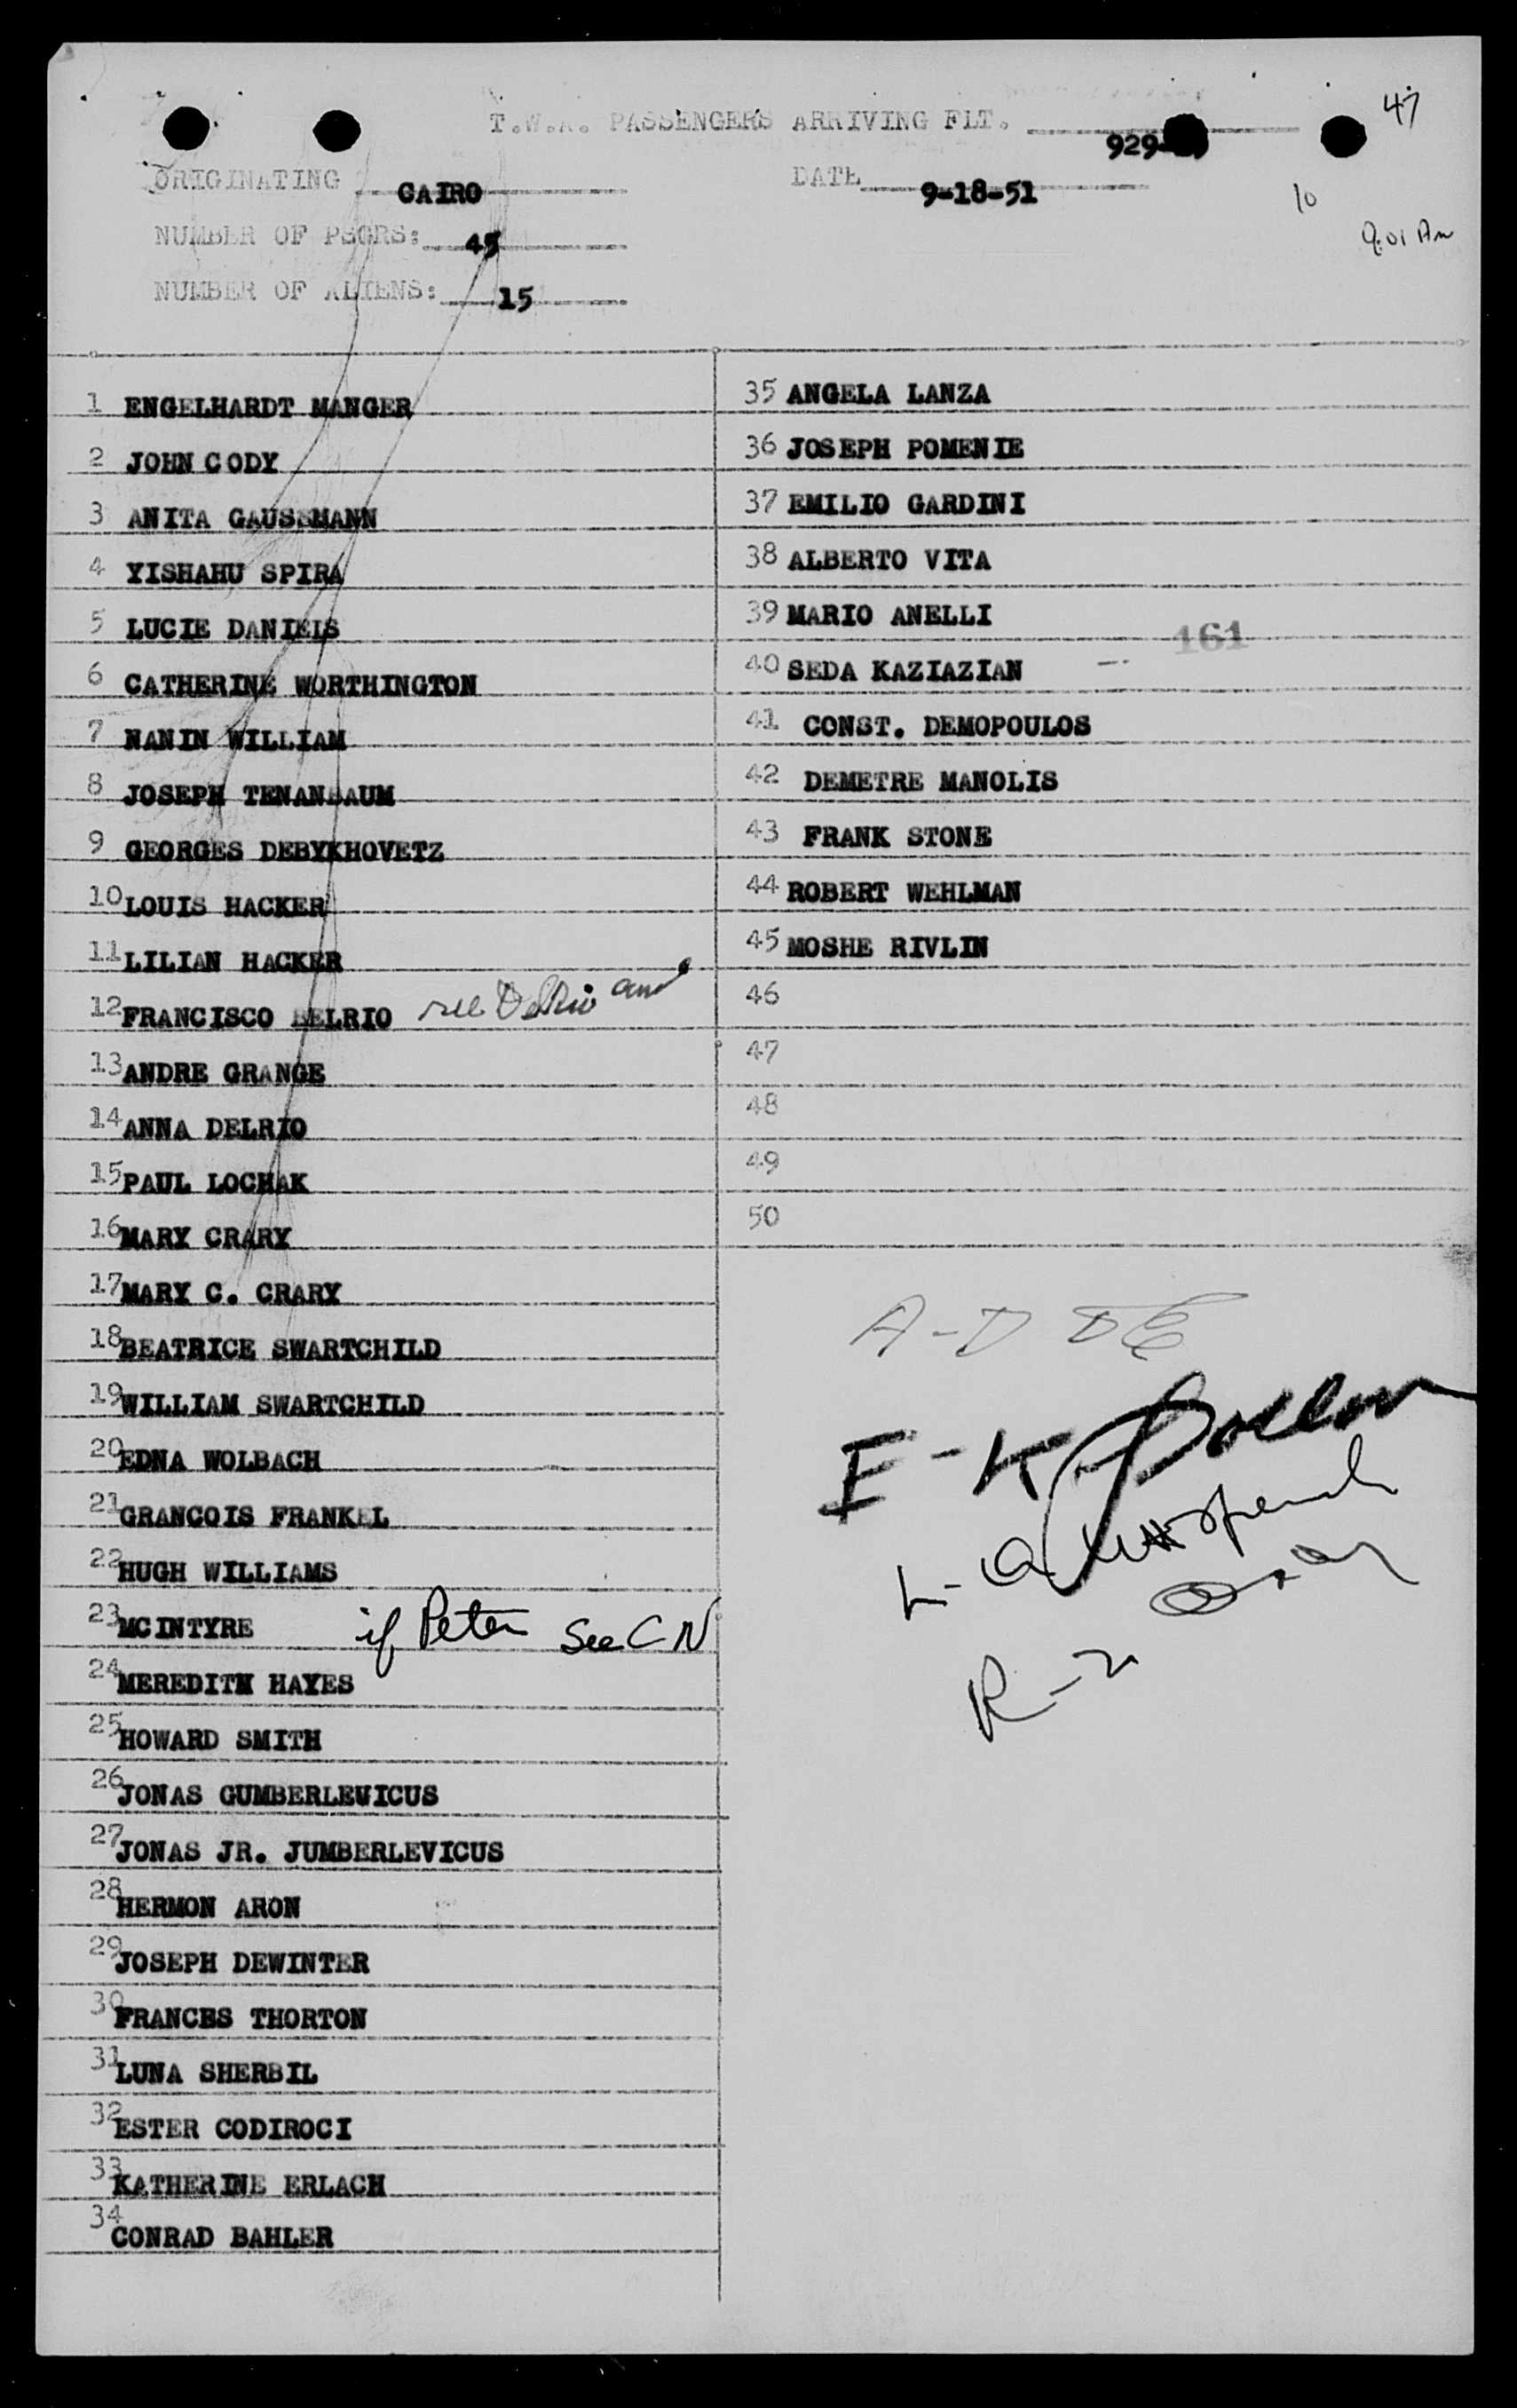 47
T.W.A. PASSENGERS ARRIVING FLT. 929-
ORIGINATING CAIRO DATE 9-18-51
10
NUMBER OF PSGRS: 45
9:01 Am
NUMBER OF ALIENS: 15
1 ENGELHARDT MANGER
2 JOHN CODY
3 ANITA GAUSSMANN
4 YISHAHU SPIRA
5 LUCIE DANIELS
6 CATHERINE WORTHINGTON
7 NANIN WILLIAM
8 JOSEPH TENANBAUM
9 GEORGES DEBYKHOVETZ
10 LOUIS HACKER
11 LILIAN HACKER
12 FRANCISCO DELRIO see DelRio
13 ANDRE GRANGE
14 ANNA DELRIO
15 PAUL LOCHAK
16 MARY CRARY
17 MARY C. CRARY
18 BEATRICE SWARTCHILD
19 WILLIAM SWARTCHILD
20 EDNA WOLBACH
21 GRANCOIS FRANKEL
22 HUGH WILLIAMS
23 MCINTYRE if Peter See C N
24 MEREDITH HAYES
25 HOWARD SMITH
26 JONAS GUMBERLEVICUS
27 JONAS JR. JUMBERLEVICUS
28 HERMON ARON
29 JOSEPH DEWINTER
30 FRANCES THORTON
31 LUNA SHERBIL
32 ESTER CODIROCI
33 KATHERINE ERLACH
34 CONRAD BAHLER
35 ANGELA LANZA
36 JOSEPH POMENIE
37 EMILIO GARDINI
38 ALBERTO VITA
39 MARIO ANELLI
161
40 SEDA KAZIAZIAN
41 CONST. DEMOPOULOS
42 DEMETRE MANOLIS
43 FRANK STONE
44 ROBERT WEHLMAN
45 MOSHE RIVLIN
46
47
48
49
50
A-D
E-K
L-Q
R-Z